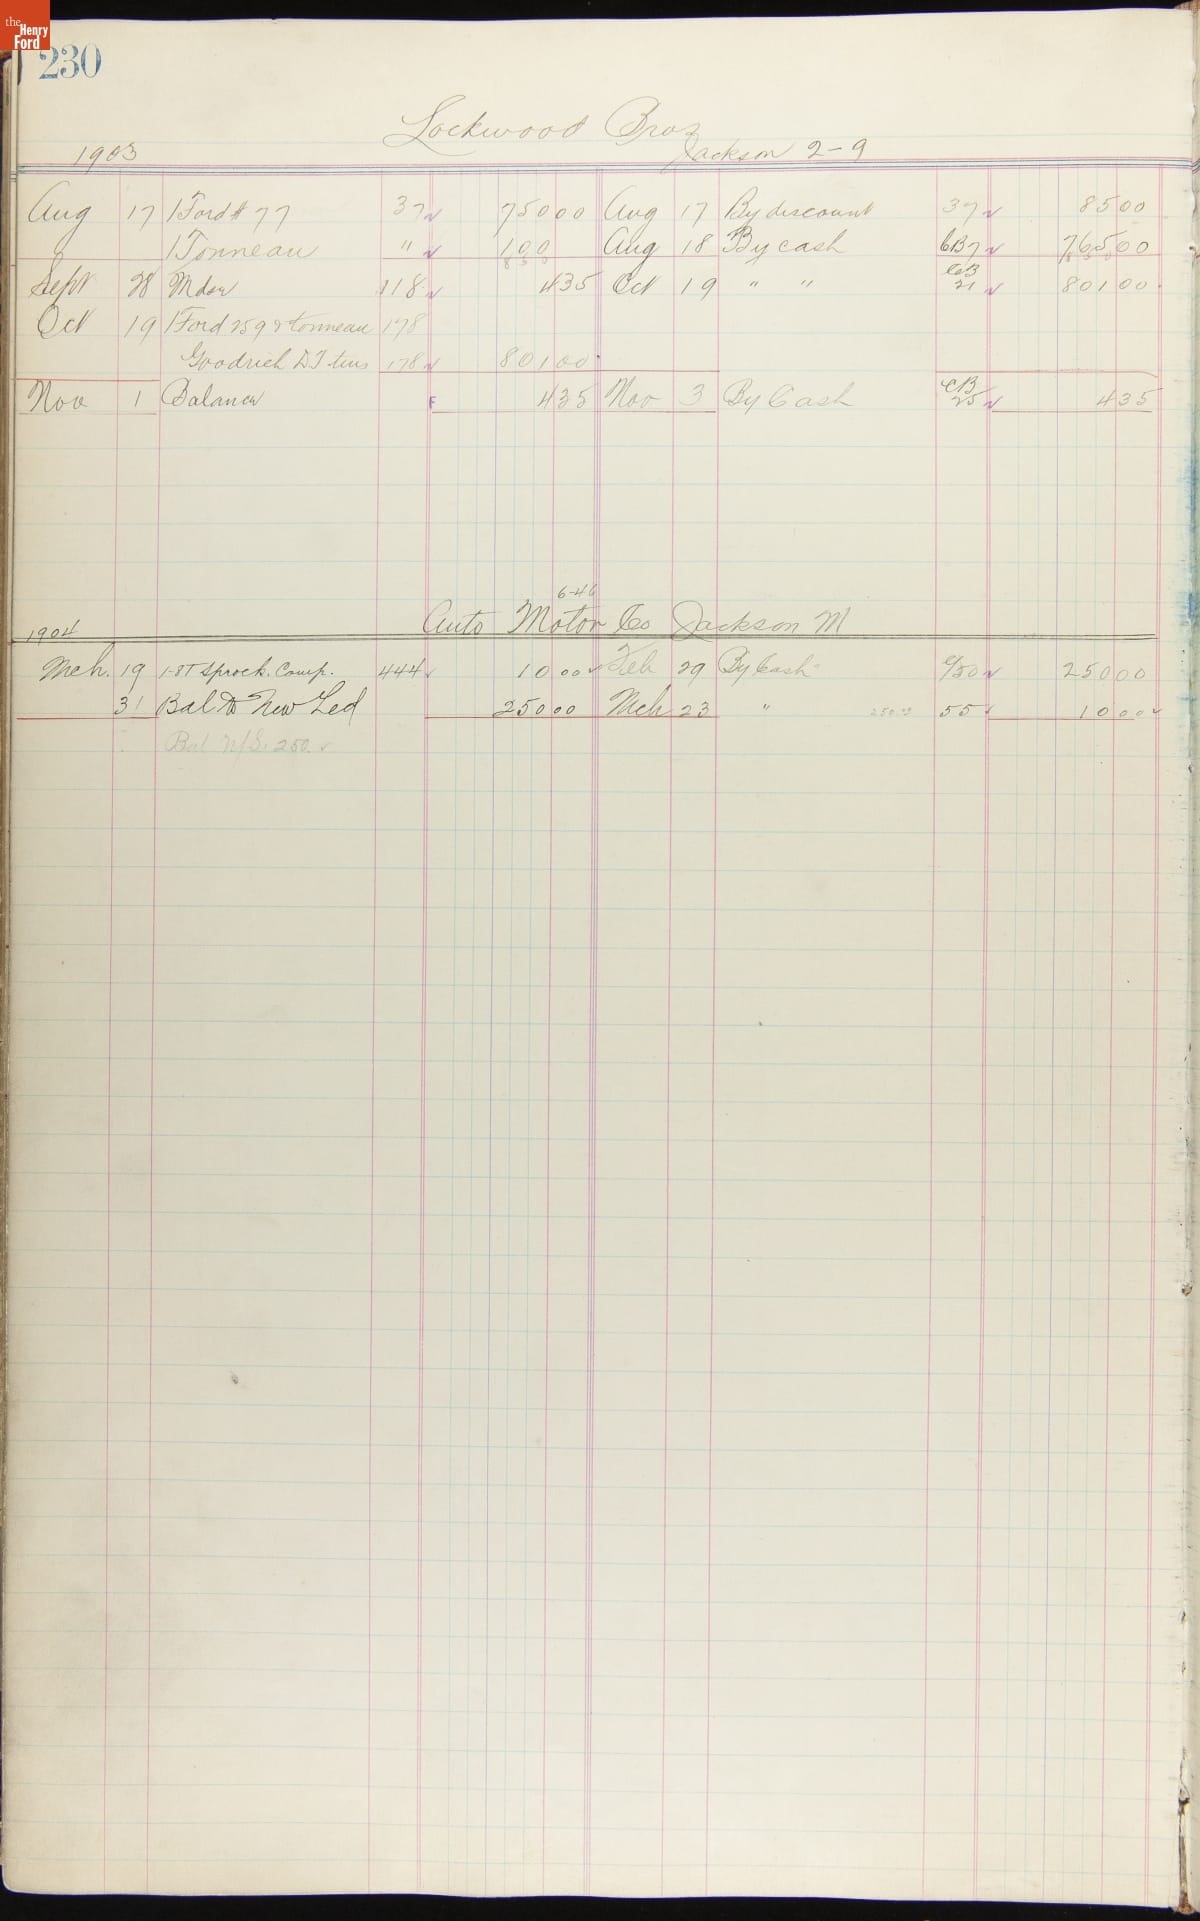 the Henry Ford
230
Lockwood Bros
1903 Jackson 2-9
Aug 17 1 Ford # 77 37 750 00 Aug 17 By discount 37 85 00
1 Tonneau " 100 Aug 18 By cash CB7 765 00
850 850
Sept 28 Mdse 118 4 35 Oct 19 " " CB 21 801 00
Oct 19 1 Ford 259 & tonneau 178
Goodrich D T tires 178 801 00
Nov 1 Balance F 4 35 Nov 3 By Cash CB 25 4 35
6-46
1904 Auto Motor Co Jackson M
Mch. 19 1-8T Sprock. Comp. 444 10 00 Feb 29 By Cash C/50 250 00
31 Bal to New Led 250 00 Mch 23 " 250.00 55 10 00
Bal N/S. 250.